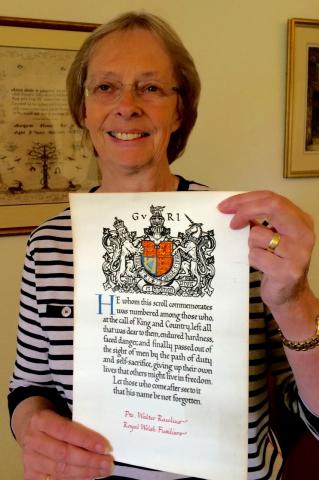 GVRI
HE whom this scroll commemorates
was numbered among those who,
at the call of King and Country, left all
that was dear to them, endured hardness,
faced danger, and finally passed out of
the sight of men by the path of duty
and self-sacrifice, giving up their own
lives that others might live in freedom.
Let those who come after see to it
that his name be not forgotten.
Pte. Walter Rawlins
Royal Welsh Fusiliers